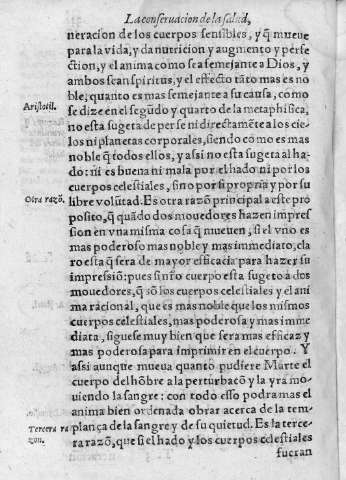 La conseruacion de la salud,
neracion de los cuerpos sensibles, y q̃ mueue
para la vida, y da nutricion y augmento y perfe
ction, y el anima como sea semejante a Dios, y
ambos sean spiritus, y el effecto tãto mas es no
ble, quanto es mas semejante a su causa, como
Aristotil.
se dize en el segũdo y quarto de la metaphisica,
no esta sugeta de per se ni directamẽte a los cie-
los ni planetas corporales, siendo como es mas
noble q̃ todos ellos, y assi no esta sugeta al ha-
do: ni es buena ni mala por el hado ni por los
cuerpos celestiales, sino por si propria y por su
Otra razõ.
libre volũtad. Es otra razõ principal a este pro
posito, q̃ quãdo dos mouedores hazen impres
sion en vna misma cosa q̃ mueuen, si el vno es
mas poderoso mas noble y mas immediato, cla
ro esta q̃ sera de mayor efficacia para hazer su
impressiõ: pues si nr̃o cuerpo esta sugeto a dos
mouedores, q̃ sõ los cuerpos celestiales y el ani
ma racional, que es mas noble que los mismos
cuerpos celestiales, mas poderosa y mas imme
diata, siguese muy bien que sera mas efficaz y
mas poderosa para imprimir en el cuerpo. Y
assi aunque mueua quanto pudiere Marte el
cuerpo del hõbre a la perturbaciõ y la yra mo-
uiendo la sangre: con todo esso podra mas el
anima bien ordenada obrar acerca de la tem-
Tercera ra
zon.
plança de la sangre y de su quietud. Es la terce-
ra razõ, que si el hado y los cuerpos celestiales
fueran